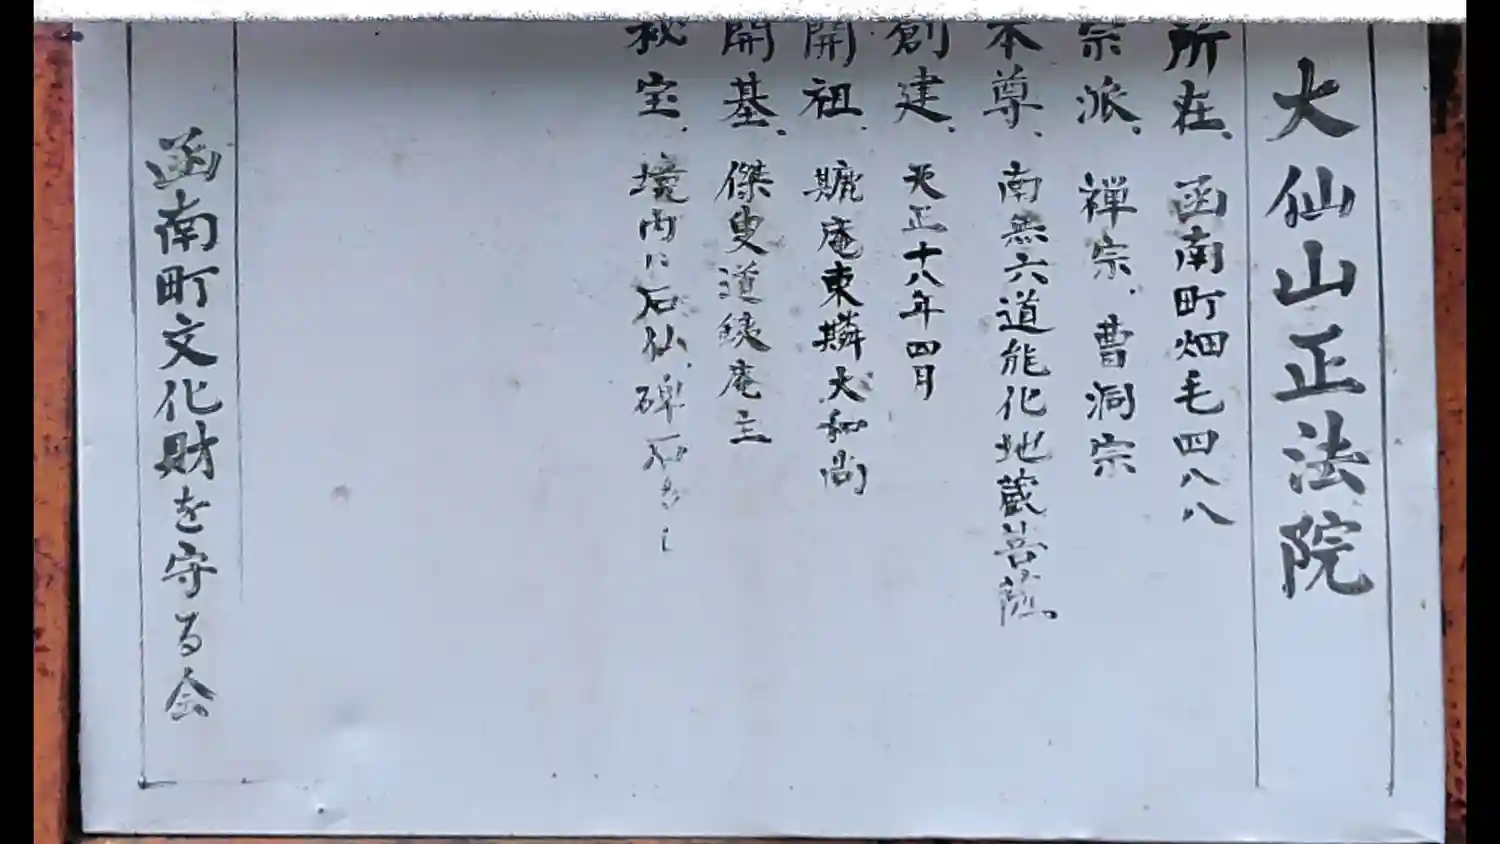 大仙山正法院
所在、函南町畑毛四八八
宗派、禅宗、曹洞宗
本尊、南無六道能化地蔵菩薩
創建、天正十八年四月
開祖、庵東麟大和尚
開基、傑叟道鉄庵主
秘宝、境内に石仏、碑石
函南町文化財を守る会